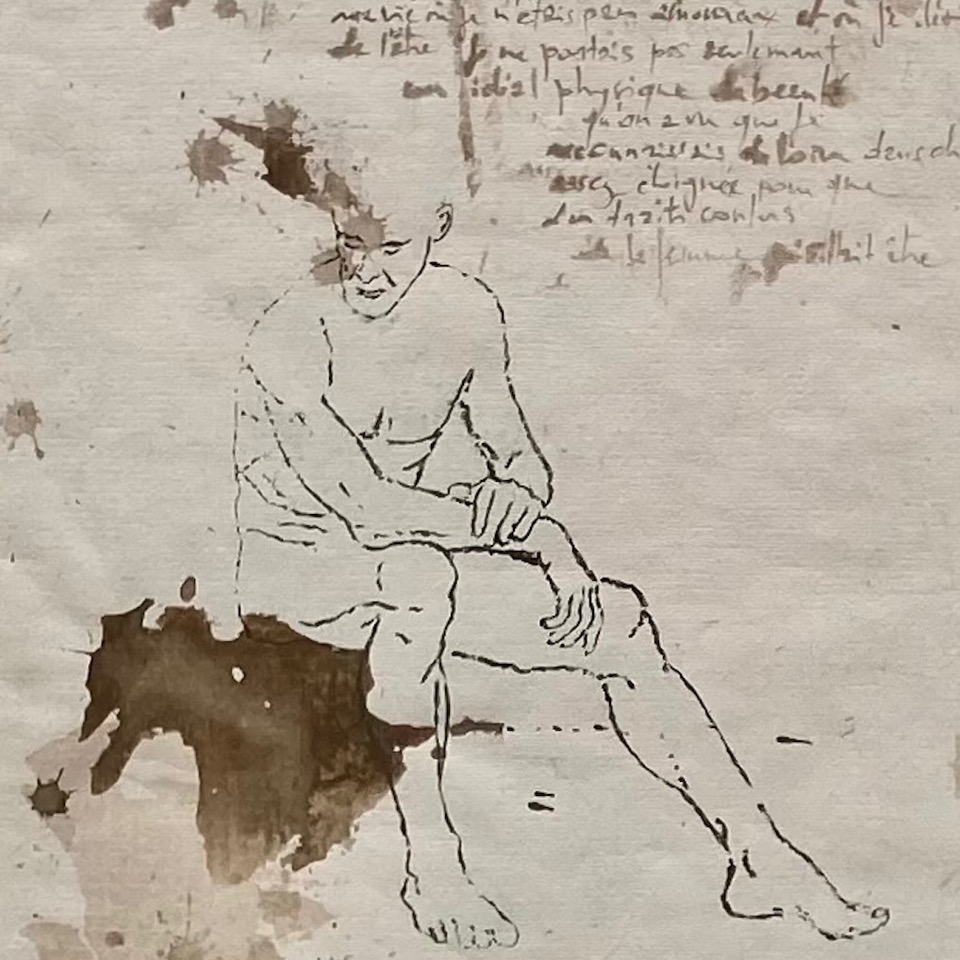 je n'étais pas amoureux et où je
de l'être je ne portais pas seulement
un idéal physique de beauté
qu'on a vu que je
reconnaissais de loin dans ch
assez éloignée pour que
des traits confus
la femme être